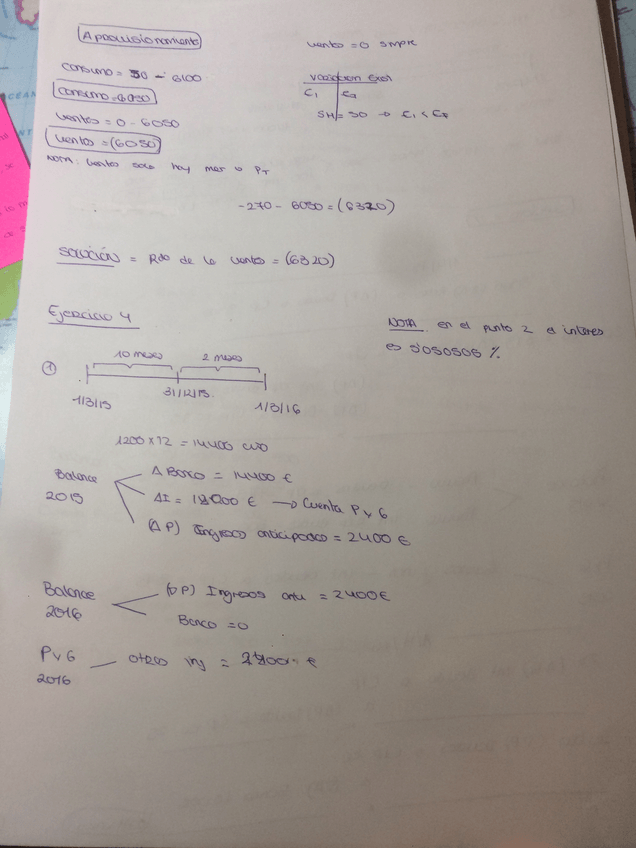 Aprovisionamiento
consumo = 50 - 6100
consumo = (6050)
ventas = 0 - 6050
ventas = (6050)
NOTA: ventas solo hay mer o PT
ventas = 0 SMPR
Variación Exist
C1 C2
SH = 50 → C1 < C2
-270 - 6050 = (6320)
SOLUCIÓN = Rdo de la venta = (6320)
Ejercicio 4
NOTA en el punto 2 el interes
es 5'050505 %
①
10 meses 2 meses
1/3/15 31/12/15 1/3/16
1200 x 12 = 14400
Balance
2015
Δ Banco = 14400 €
ΔI = 12000 € → Cuenta P y G
(Δ P) Ingresos anticipados = 2400 €
Balance
2016
(∇ P) Ingresos anti = 2400 €
Banco = 0
P y G
2016
otros ing = 2400 €